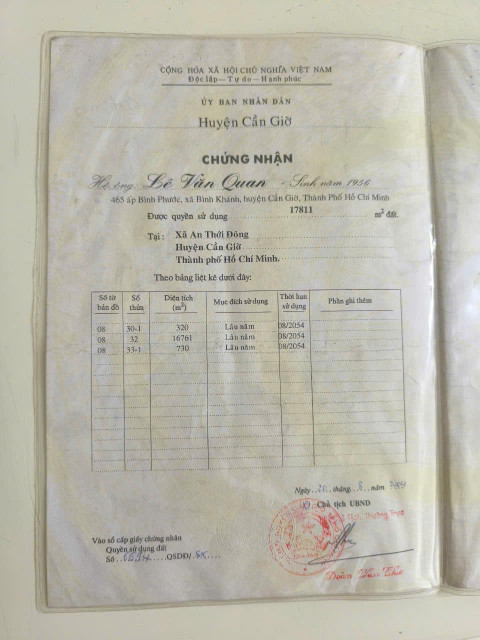 CỘNG HÒA XÃ HỘI CHỦ NGHĨA VIỆT NAM
Độc lập - Tự do - Hạnh phúc
ỦY BAN NHÂN DÂN
Huyện Cần Giờ
CHỨNG NHẬN
Hộ ông: Lê Văn Quan - Sinh năm 1956
465 ấp Bình Phước, xã Bình Khánh, huyện Cần Giờ, Thành Phố Hồ Chí Minh
Được quyền sử dụng 17811 m² đất.
Tại: Xã An Thới Đông
Huyện Cần Giờ
Thành phố Hồ Chí Minh.
Theo bảng liệt kê dưới đây:
Số tờ bản đồ Số thửa Diện tích (m²) Mục đích sử dụng Thời hạn sử dụng Phần ghi thêm
08 30-1 320 Lâu năm 08/2054
08 32 16761 Lâu năm 08/2054
08 33-1 730 Lâu năm 08/2054
Ngày 20 tháng 8 năm
Chủ tịch UBND
Vào sổ cấp giấy chứng nhận
Quyền sử dụng đất
Số QSDĐ/